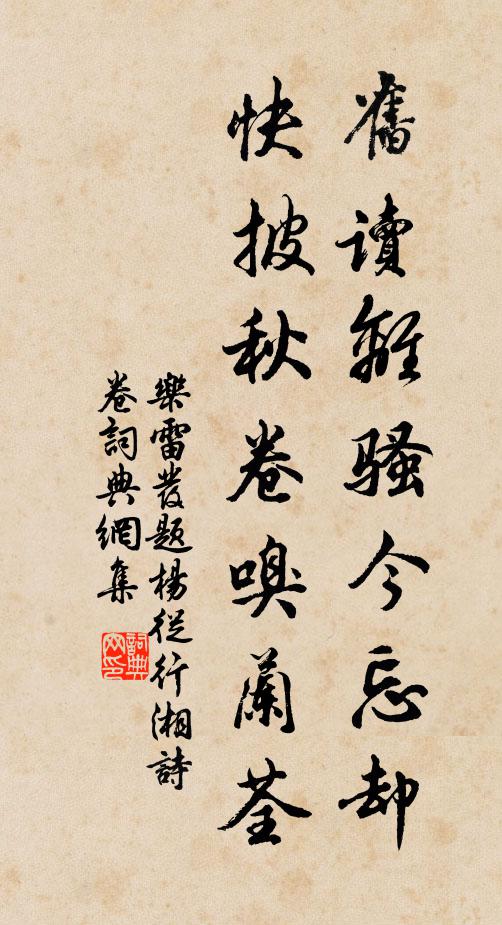 舊讀離騷今忘却
快披秋卷嗅蘭荃
樂雷發題楊從行湘詩
卷詞典網集
詞典網印